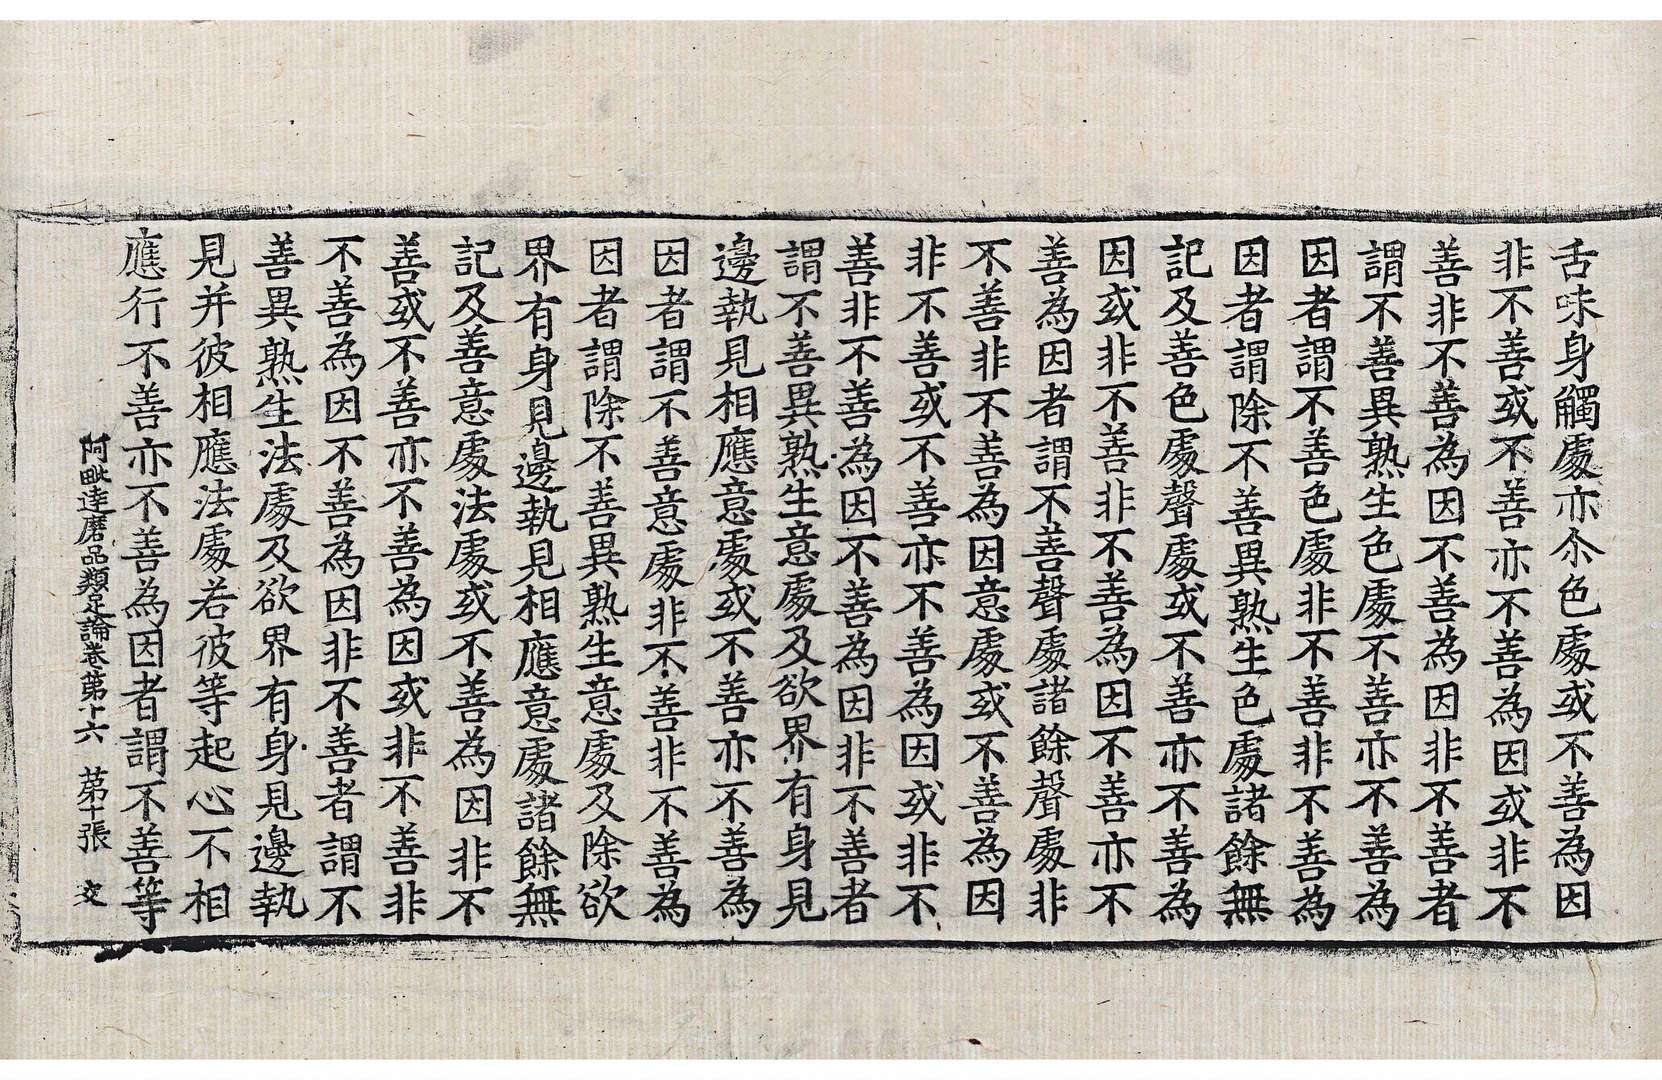 舌味身觸處亦尒色處或不善為因
非不善或不善亦不善為因或非不
善非不善為因不善為因非不善者
謂不善異熟生色處不善亦不善為
因者謂不善色處非不善非不善為
因者謂除不善異熟生色處諸餘無
記及善色處聲處或不善亦不善為
因或非不善非不善為因不善亦不
善為因者謂不善聲處諸餘聲處非
不善非不善為因意處或不善為因
非不善或不善亦不善為因或非不
善非不善為因不善為因非不善者
謂不善異熟生意處及欲界有身見
邊執見相應意處或不善亦不善為
因者謂不善意處非不善非不善為
因者謂除不善異熟生意處及除欲
界有身見邊執見相應意處諸餘無
記及善意處法處或不善為因非不
善或不善亦不善為因或非不善非
不善為因不善為因非不善者謂不
善異熟生法處及欲界有身見邊執
見并彼相應法處若彼等起心不相
應行不善亦不善為因者謂不善等
阿毗達磨品類足論卷第十六 第十張 交